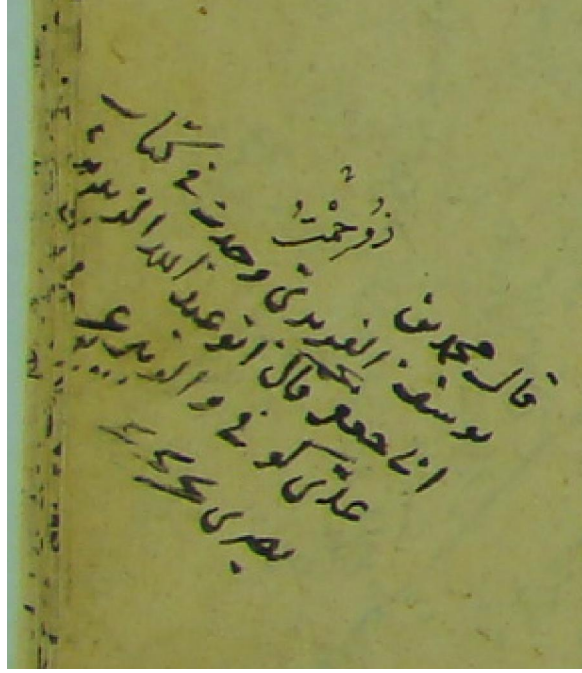 زُوحِمْتُ
قال محمد بن
يوسف الفربرى وجدت فى كتاب
ابى جعفر قال ابو عبد الله الزبير بن
عدى كوفى والزبير بن عربى
بصرى